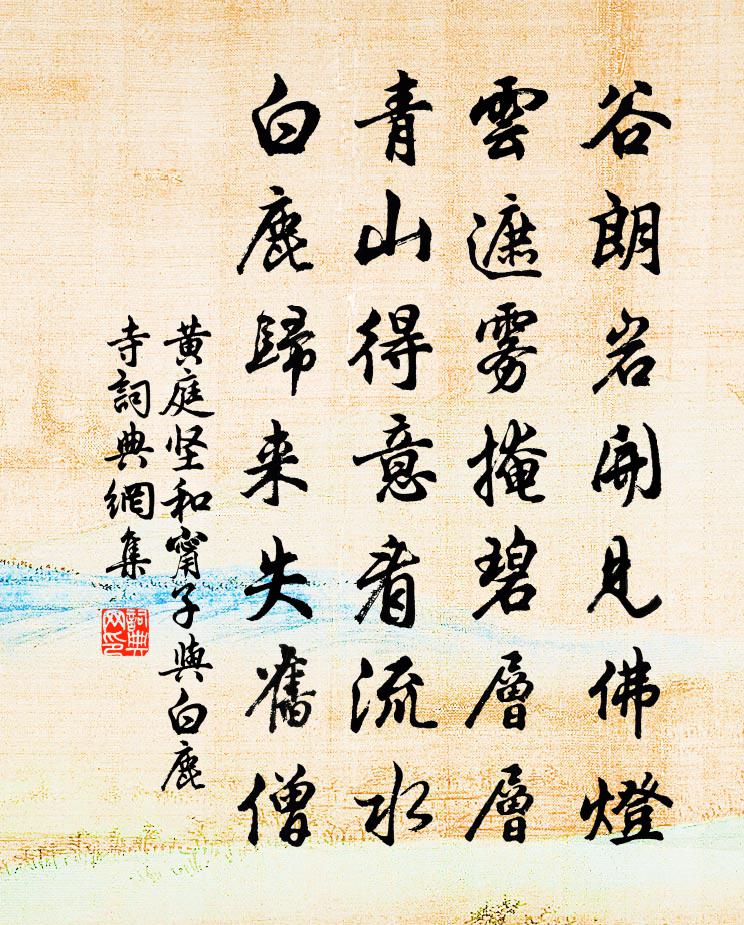 谷朗岩開見佛燈
雲遮雾掩碧層層
青山得意看流水
白鹿歸来失舊僧
黄庭坚和甯子與白鹿
寺詞典網集
詞典
网印